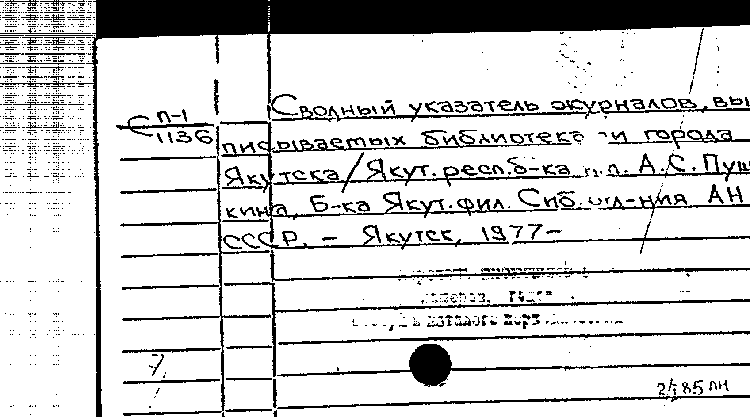 С п-1
1136
Сводный указатель журналов, вы
писываемых библиотека и города
Якутска/Якут. респ. б-ка А.С. Пуш
кина, Б-ка Якут. фил. Сиб. отд-ния АН
СССР. – Якутск, 1977–
85 ЛН